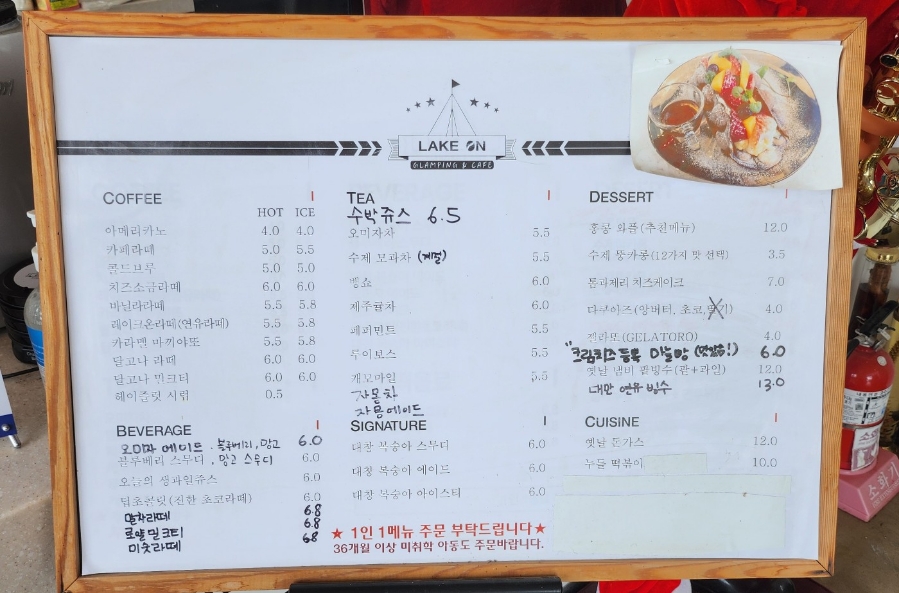 LAKE ON
GLAMPING & CAFE
COFFEE
HOT ICE
아메리카노 4.0 4.0
카페라떼 5.0 5.5
콜드브루 5.0 5.0
치즈소금라떼 6.0 6.0
바닐라라떼 5.5 5.8
레이크온라떼(연유라떼) 5.5 5.8
카라멜 마끼야또 5.5 5.8
달고나 라떼 6.0 6.0
달고나 밀크티 6.0 6.0
헤이즐릿 시럽 0.5
BEVERAGE
오미자 에이드 . 블루베리, 망고 6.0
블루베리 스무디 , 망고 스무디 6.0
오늘의 생과일쥬스 6.0
딥초콜릿(진한 초코라떼) 6.0
말차라떼 6.8
로얄밀크티 6.8
미숫라떼 6.8
TEA
수박쥬스 6.5
오미자차 5.5
수제 모과차 (계절) 5.5
뱅쇼 6.0
제주귤차 6.0
페퍼민트 5.5
루이보스 5.5
캐모마일 5.5
자몽차
자몽에이드
SIGNATURE
대창 복숭아 스무디 6.0
대창 복숭아 에이드 6.0
대창 복숭아 아이스티 6.0
★ 1인 1메뉴 주문 부탁드립니다★
36개월 이상 미취학 아동도 주문바랍니다.
DESSERT
홍콩 와플(추천메뉴) 12.0
수제 뚱카롱(12가지 맛 선택) 3.5
톰과제리 치즈케이크 7.0
다쿠아즈(앙버터, 초코, 딸기) 4.0
젤라또(GELATORO) 4.0
"크림치즈 듬뿍 마늘빵 (맛있음!) 6.0
옛날 냄비 팥빙수(팥+과일) 12.0
대만 연유 빙수 13.0
CUISINE
옛날 돈가스 12.0
누들 떡볶이 10.0
소화기